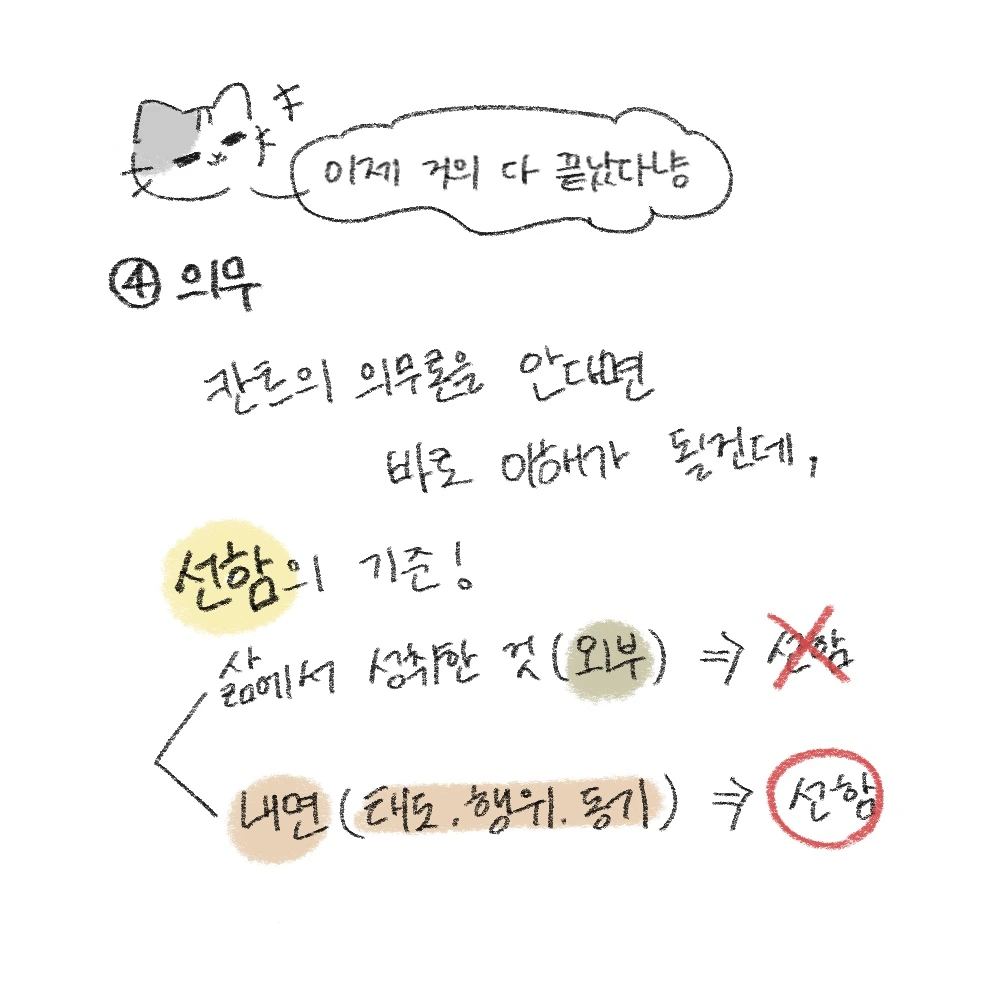 이제 거의 다 끝났다냥
④ 의무
칸트의 의무론을 안다면
바로 이해가 될건데,
선함의 기준!
삶에서 성취한 것(외부) ⇒ 선함
내면(태도.행위.동기) ⇒ 선함